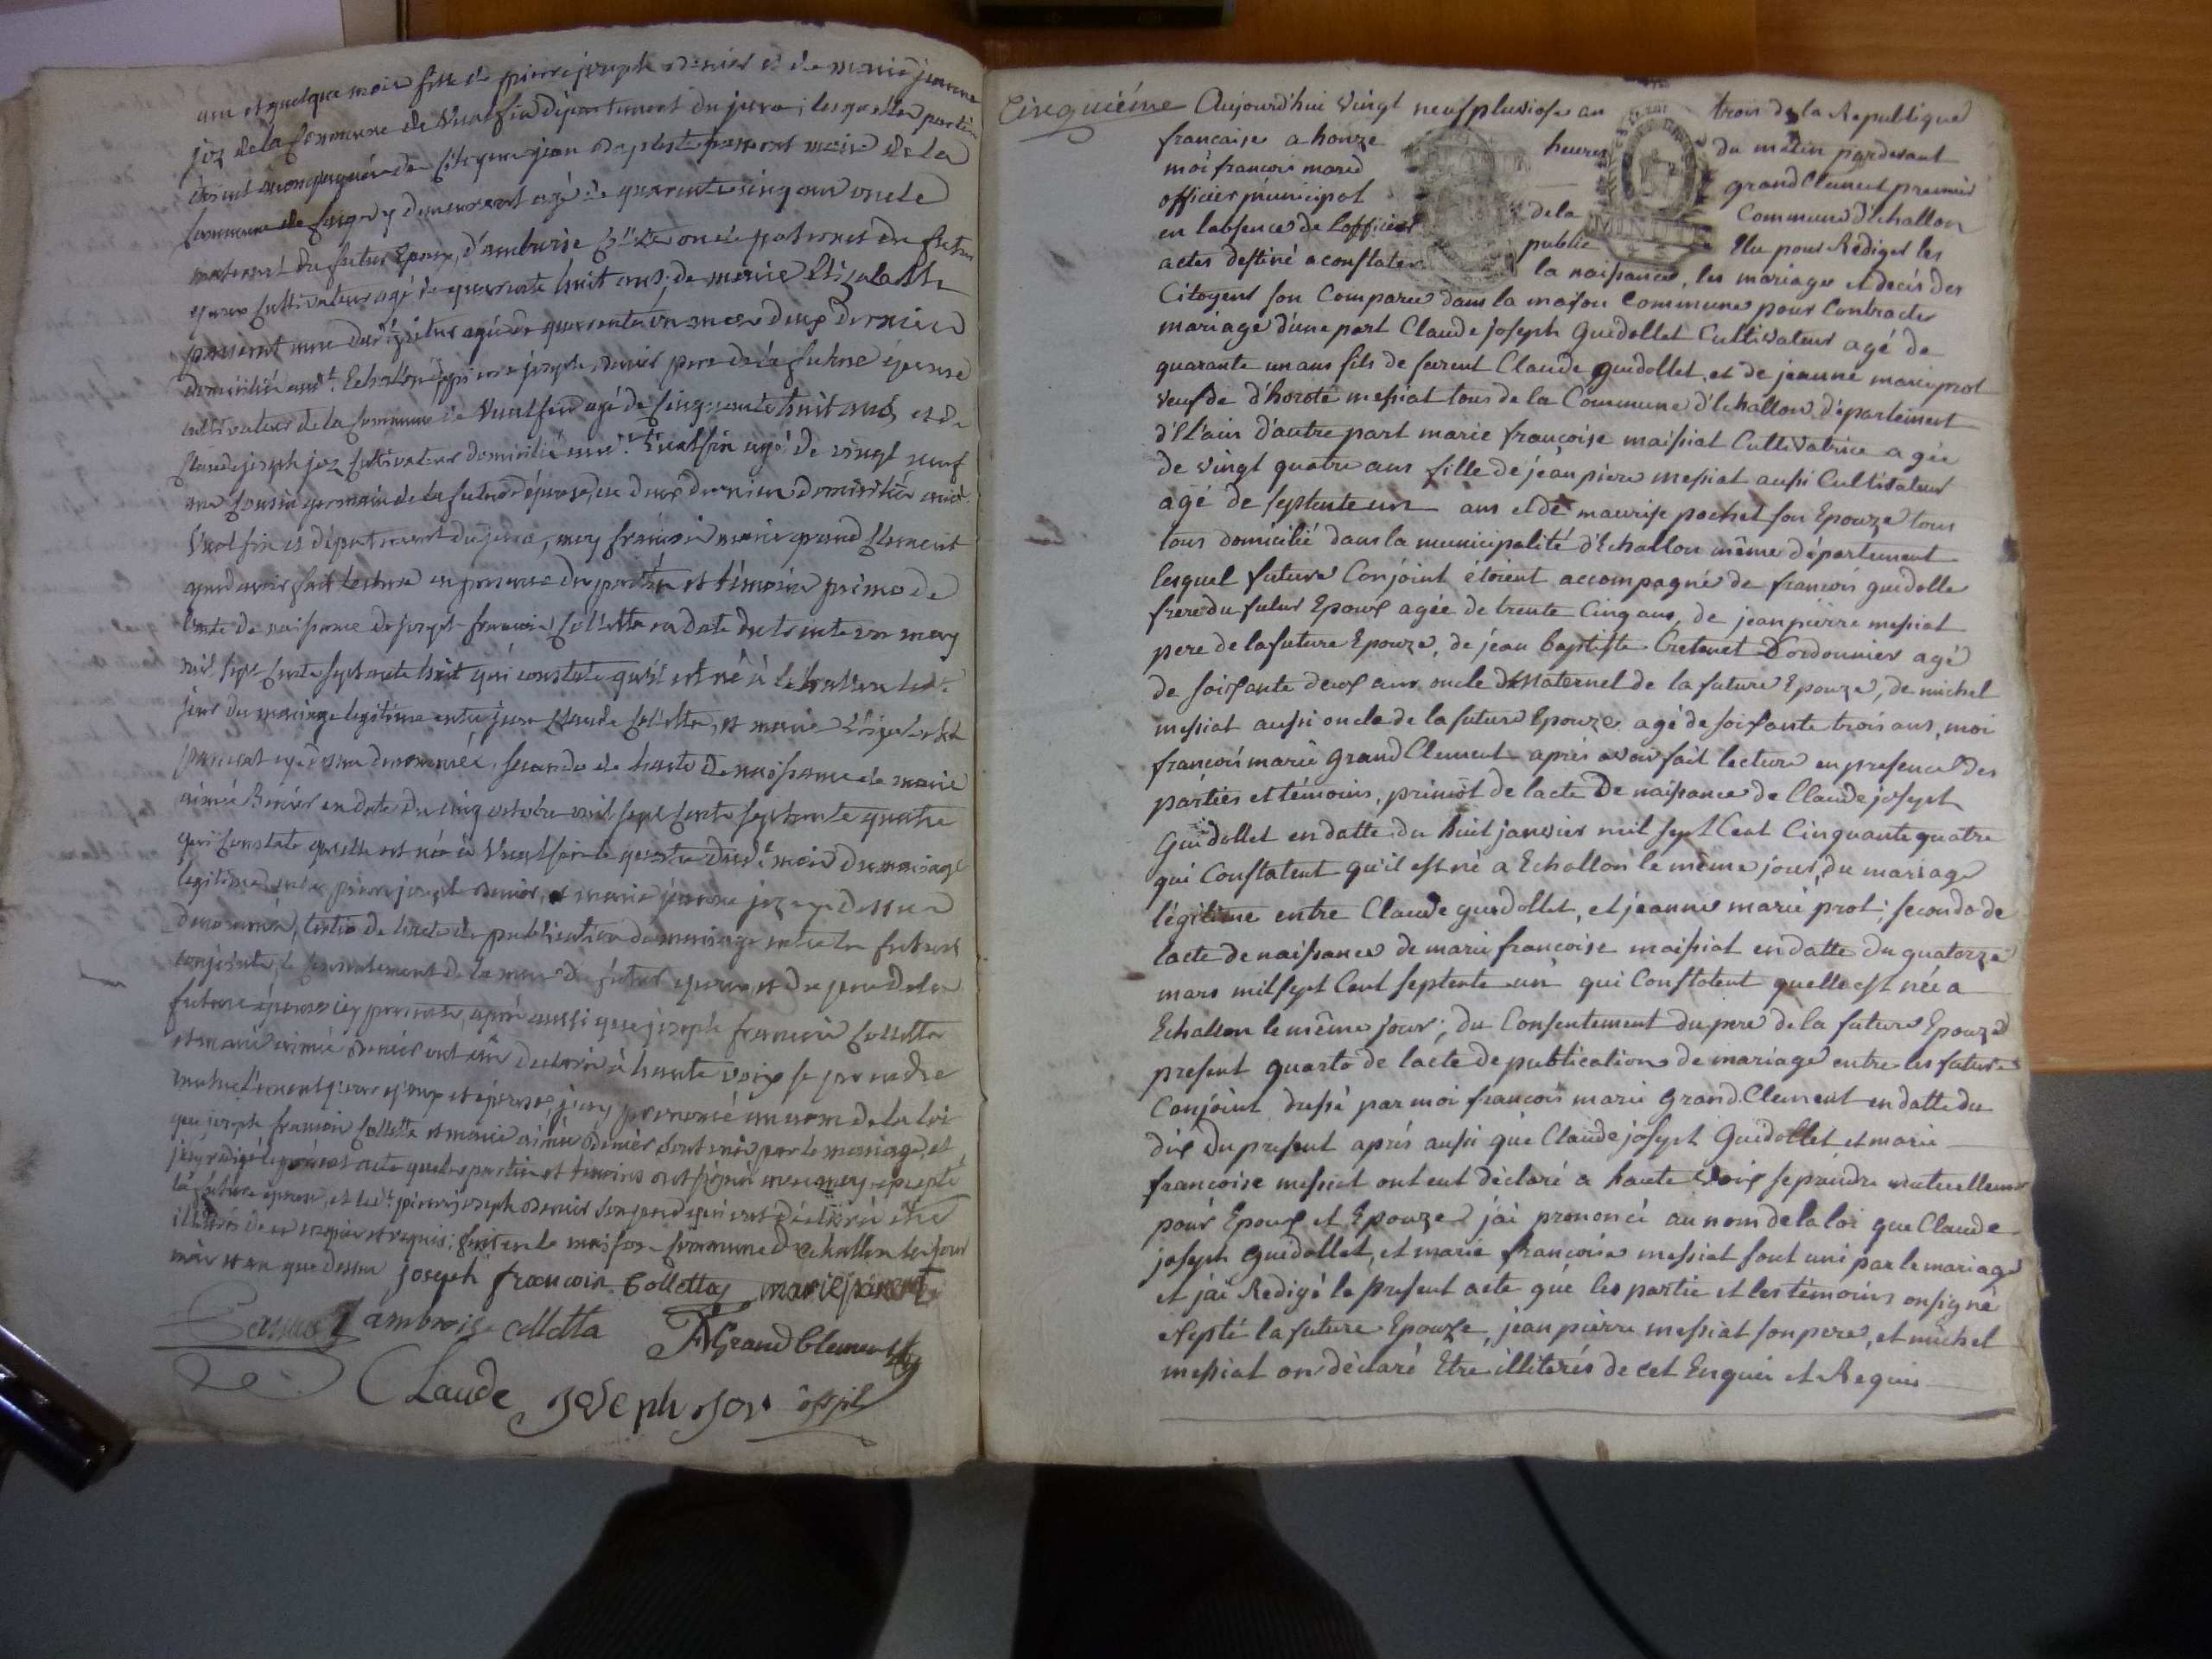 ans et quelque mois fille de pierre joseph Benier et de marie jeanne
joz de la Commune de Vualfin département du jura, lesquelles parties
étoient accompagnée de Citoyen jean Baptiste
demeurant agé de quarante cinq ans oncle
maternel du futur Epoux, d'ambroise Colletta oncle paternel du futur
époux Cultivateur agé de quarante huit ans, de marie Elizabeth
agée de quarante un ans deux derniers
domicilié aud.t Echallon de pierre joseph Benier pere de la future épouse
cultivateur de la Commune de Vualfin agé de cinquante huit ans, et de
Claude joseph joz Cultivateur domicilié aud.t Vualfin agé de vingt neuf
ans Cousin germain de la future épouse, ces deux derniers domicilié aud.
Vualfin et département du jura, moy francois marie grand Clement
après avoir fait lecture en presence des parties et témoins primo de
l'acte de naissance de joseph francois Colletta en date du trente un may
mil sept cents septante huit qui constate qu'il est né à Echallon led.t
jour du mariage legitime entre jean Claude Colletta, et marie Elizabeth
denommée, secondo de l'acte de naissance de marie
aimée Benier en date du cinq octobre mil sept cents septante quatre
qui constate quelle est née à Vualfin le quatre dud.t mois du mariage
legitime entre pierre joseph Benier, et marie jeanne joz cy dessus
denommé, tertio de l'acte de publication de mariage entre les futurs
conjoints, le consentement de la mere du futur epoux et du pere de la
future épouse icy presents, après aussi que joseph francois Colletta
et marie aimée Benier ont eû declaré à haute voix se prendre
mutuellement pour epoux et épouse, j'ay prononcé au nom de la loi
que joseph francois Colletta et marie aimée Benier sont unis par le mariage, et
j'ay rédigé le présent acte que les parties et témoins ont signé avec moy, excepté
la future epouse, et led.t pierre joseph Benier son pere qui ont déclaré être
illiterés de ce enquis et requis; fait en la maison Commune d'echallon les jour
mois et an que dessus joseph francois Colletta
ambroise colletta FM Grand Clement
Claude joseph joz off pu
Cinquiéme Aujourd'hui vingt neuf pluviose an trois de la Republique
francaise a honze heures du matin pardevant
moi francois marie grand Clement premier
officier municipal de la Commune d'Echallon
en labsence de lofficier public Elu pour Rediger les
actes destiné a constater la naissance, les mariages et decés des
MINUTE
Citoyens son Comparus dans la maison Commune pour Contracter
mariage d'une part Claude joseph Guidollet Cultivateur agé de
quarante un ans fils de furent Claude guidollet, et de jeanne marie prot
veuf de d'horoté messiat tous de la Commune d'Echallon, département
d'El'ain d'autre part marie francoise maissiat Cultivatrice agée
de vingt quatre ans fille de jéan piere messiat aussi Cultivateur
agé de septente un ans et de maurise pochet son Epouze tous
tous domicilié dans la municipalité d'Echallon même département
lesquel future Conjoint étoient accompagné de francois guidolle
frere du futur Epoux agée de trente Cinq ans, de jean pierre messiat
pere de la future Epouze, de jéan baptiste Cretenet Cordonnier agé
de soissante deux ans oncle Maternel de la future Epouze, de michel
messiat aussi oncle de la future Epouze agé de soissante trois ans, moi
francois marie grand Clement après avoir fait lecture en presence des
parties et témoins, primöt de lacte De naissance de Claude joseph
Guidollet en datte du huit janvier mil sept Cent Cinquante quatre
qui Constatent qu'il est né a Echallon le même jour, du mariage
légitime entre Claude guidollet, et jeanne marie prot; secondo de
lacte de naissance de marie francoise maissiat en datte du quatorze
mars mil sept Cent septente un qui Constatent quelle est née a
Echallon le même jour; du Consentement du pere de la future Epouze
present quarto de lacte de publication de mariage entre les future
Conjoint dressé par moi francois marie Grand. Clement en datte du
dix du present aprés aussi que Claude joseph Guidollet et marie
francoise messiat ont eut déclaré a haute Voix se prendre mutuellement
pour Epoux et Epouze jai prononcé au nom de la loi que Claude
joseph guidollet, et marie francoise messiat sont uni par le mariage
et jai Redigé le present acte que les partie et les témoins on signé
exepté la future Epouze, jean pierre messiat son pere, et michel
messiat on déclaré Etre illiterés de cet Enquis et Requis